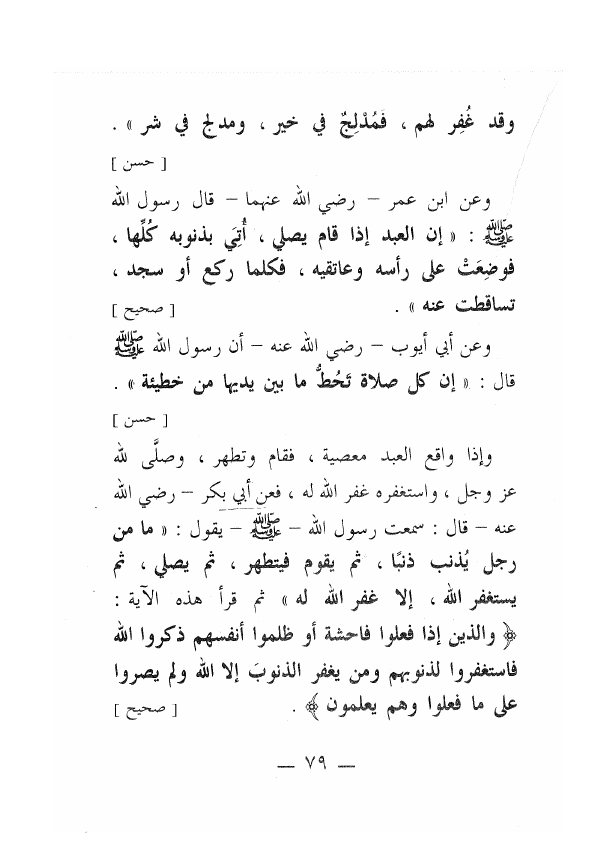 وقد غُفِر لهم ، فَمُدْلِجٌ في خير ، ومدلج في شر » .
[ حسن ]
وعن ابن عمر – رضي الله عنهما – قال رسول الله
ﷺ : « إن العبد إذا قام يصلي ، أُتِيَ بذنوبه كُلِّها ،
فوضِعَتْ على رأسه وعاتقيه ، فكلما ركع أو سجد ،
تساقطت عنه » . [ صحيح ]
وعن أبي أيوب – رضي الله عنه – أن رسول الله ﷺ
قال : « إن كل صلاة تَحُطُّ ما بين يديها من خطيئة » .
[ حسن ]
وإذا واقع العبد معصية ، فقام وتطهر ، وصلَّى لله
عز وجل ، واستغفره غفر الله له ، فعن أبي بكر – رضي الله
عنه – قال : سمعت رسول الله – ﷺ – يقول : « ما من
رجل يُذنب ذنبًا ، ثم يقوم فيتطهر ، ثم يصلي ، ثم
يستغفر الله ، إلا غفر الله له » ثم قرأ هذه الآية :
﴿ والذين إذا فعلوا فاحشة أو ظلموا أنفسهم ذكروا الله
فاستغفروا لذنوبهم ومن يغفر الذنوبَ إلا الله ولم يصروا
على ما فعلوا وهم يعلمون ﴾ . [ صحيح ]
— ٧٩ —